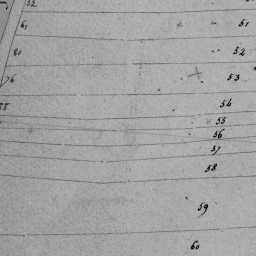 52
61
51
80
52
6
53
54
55
56
57
58
59
60